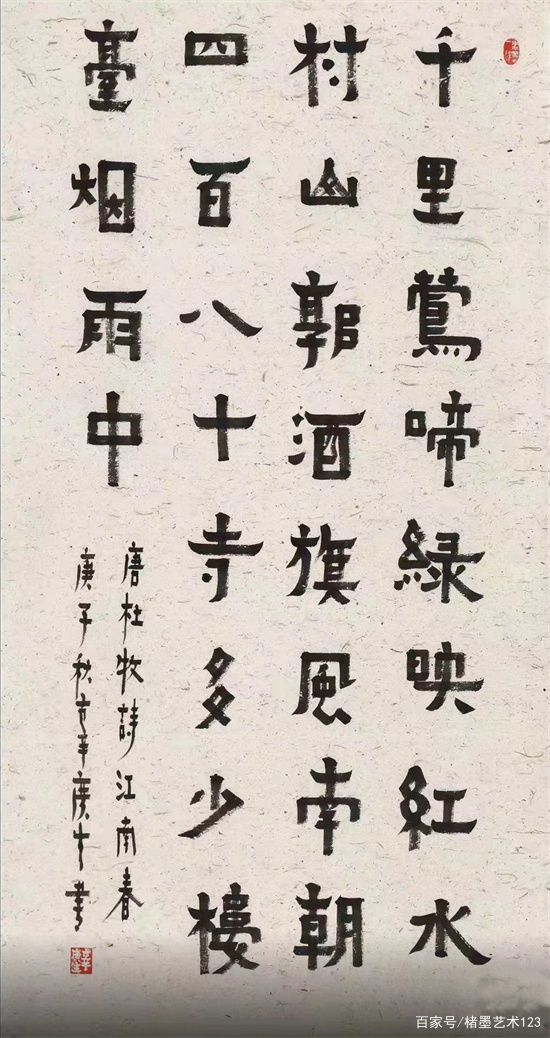 千里鶯啼緑映紅水
村山郭酒旗風南朝
四百八十寺多少樓
臺烟雨中
唐杜牧詩江南春
庚子秋辛庚書
百家号/楮墨艺术123